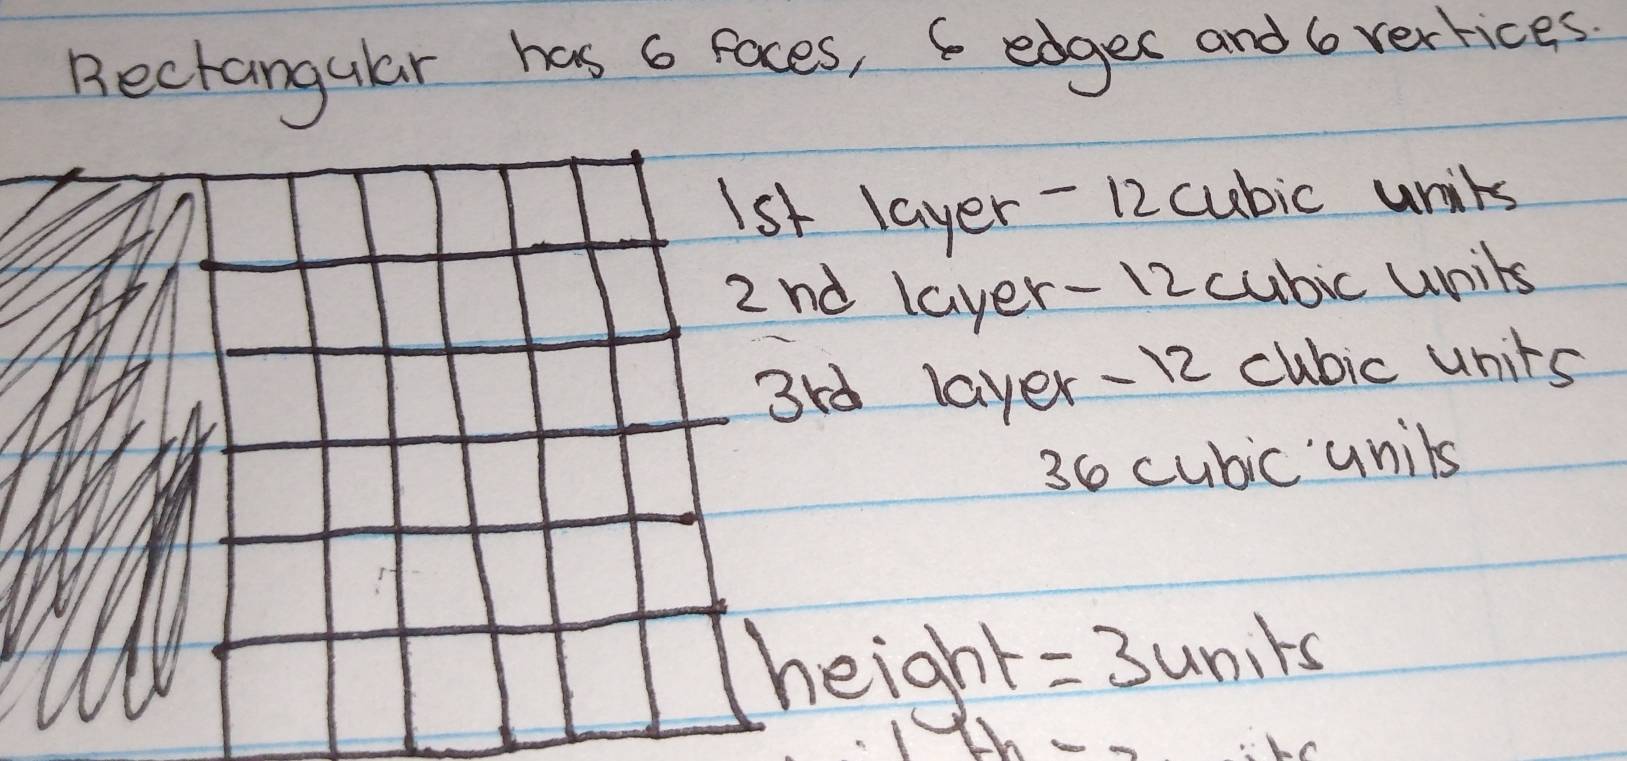 Rectangular has 6 faces, 6 edges and 6 vertices.
1st layer - 12 cubic units
2nd layer - 12 cubic units
3rd layer - 12 cubic units
36 cubic units
height = 3 units